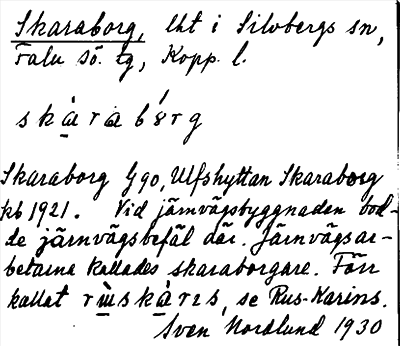 Skaraborg, lht i Silvbergs sn,
Falu sö. tg, Kopp. l.
skàrabórg
Skaraborg Ggo, Ulfshyttan Skaraborg
kb 1921. Vid järnvägsbyggnaden bod-
de järnvägsbefäl där. Järnvägsar-
betarna kallades skaraborgare. Förr
kallat rùskàrɪs, se Rus-Karins.
Sven Nordlund 1930